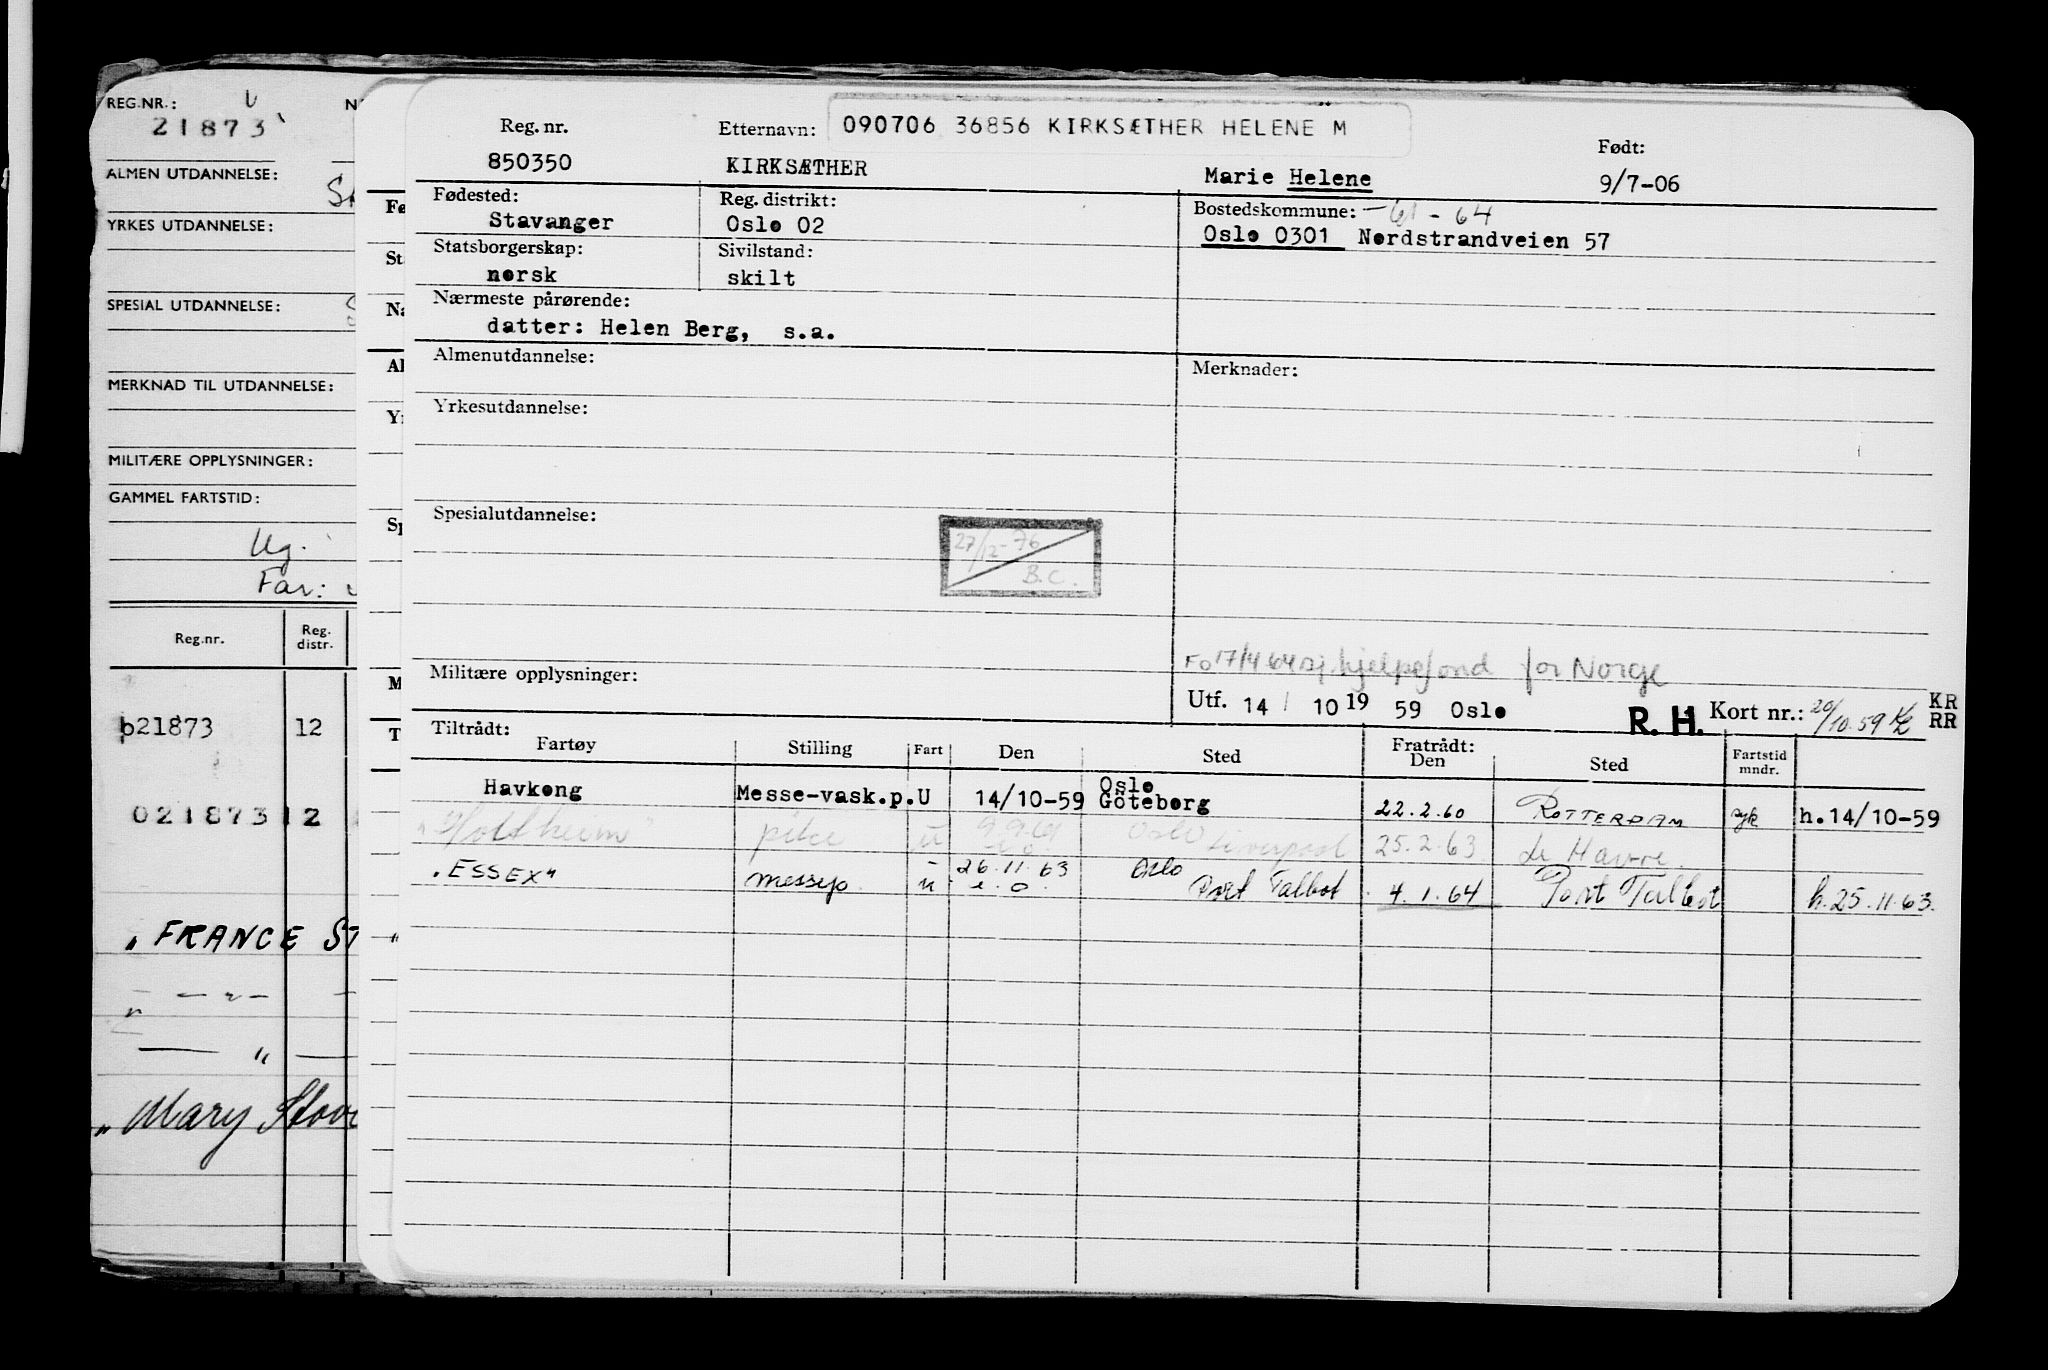 REG.NR.:
21873
ALMEN UTDANNELSE:
YRKES UTDANNELSE:
SPESIAL UTDANNELSE:
MERKNAD TIL UTDANNELSE:
MILITÆRE OPPLYSNINGER:
GAMMEL FARTSTID:
Ug.
Far:
Reg.nr. Reg. distr.
p21873 12
021873 12
"FRANCE ST
"Mary Stov
Reg. nr. Etternavn: 090706 36856 KIRKSÆTHER HELENE M Født:
850350 KIRKSÆTHER Marie Helene 9/7-06
Fødested: Reg. distrikt: Bostedskommune: -61-64
Stavanger Oslo 02 Oslo 0301 Nordstrandveien 57
Statsborgerskap: Sivilstand:
norsk skilt
Nærmeste pårørende:
datter: Helen Berg, s.a.
Almenutdannelse: Merknader:
Yrkesutdannelse:
Spesialutdannelse:
27/12-76
B.C.
Fo 17/4 64 hjelpefond for Norge
Militære opplysninger: Utf. 14 / 10 19 59 Oslo R.H. Kort nr.: 20/10.59 KR RR
Tiltrådt: Fratrådt:
Fartøy Stilling Fart Den Sted Den Sted Fartstid mndr.
Havkong Messe-vask.p. U 14/10-59 Oslo Göteborg 22.2.60 ROTTERDAM syk h.14/10-59
u Oslo Liverpool 25.2.63 le Havre.
"ESSEX" messep. u 26.11.63 e.o. Oslo Port Talbot 4.1.64 Port Talbot h.25.11.63.